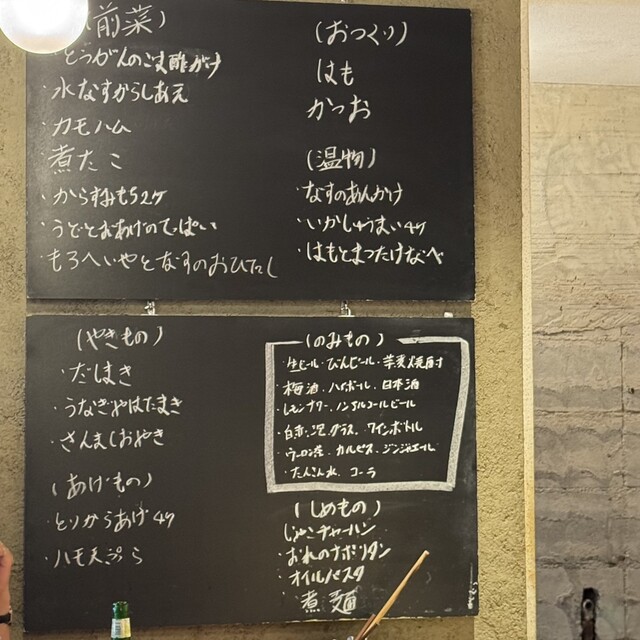 (前菜)
とうがんのごま酢がけ
・水なすからしあえ
・カモハム
・煮たこ
・からすみもち2ヶ
・うどとおあげのてっぱい
・もろへいやとなすのおひたし
(おつくり)
はも
かつお
(温物)
・なすのあんかけ
・いかしゅうまい4ヶ
・はもとまつたけなべ
(やきもの)
・だしまき
・うなぎやはたまき
・さんましおやき
(あげもの)
・とりからあげ4ヶ
・ハモ天ぷら
(のみもの)
・生ビール・びんビール・芋麦焼酎
・梅酒・ハイボール・日本酒
・レモンサワー・ノンアルコールビール
・白赤・泡グラス・ワインボトル
・ウーロン茶・カルピス・ジンジャエール
・たんさん水・コーラ
(しめもの)
・じゃこチャーハン
・おれのナポリタン
・オイルパスタ
・煮麺